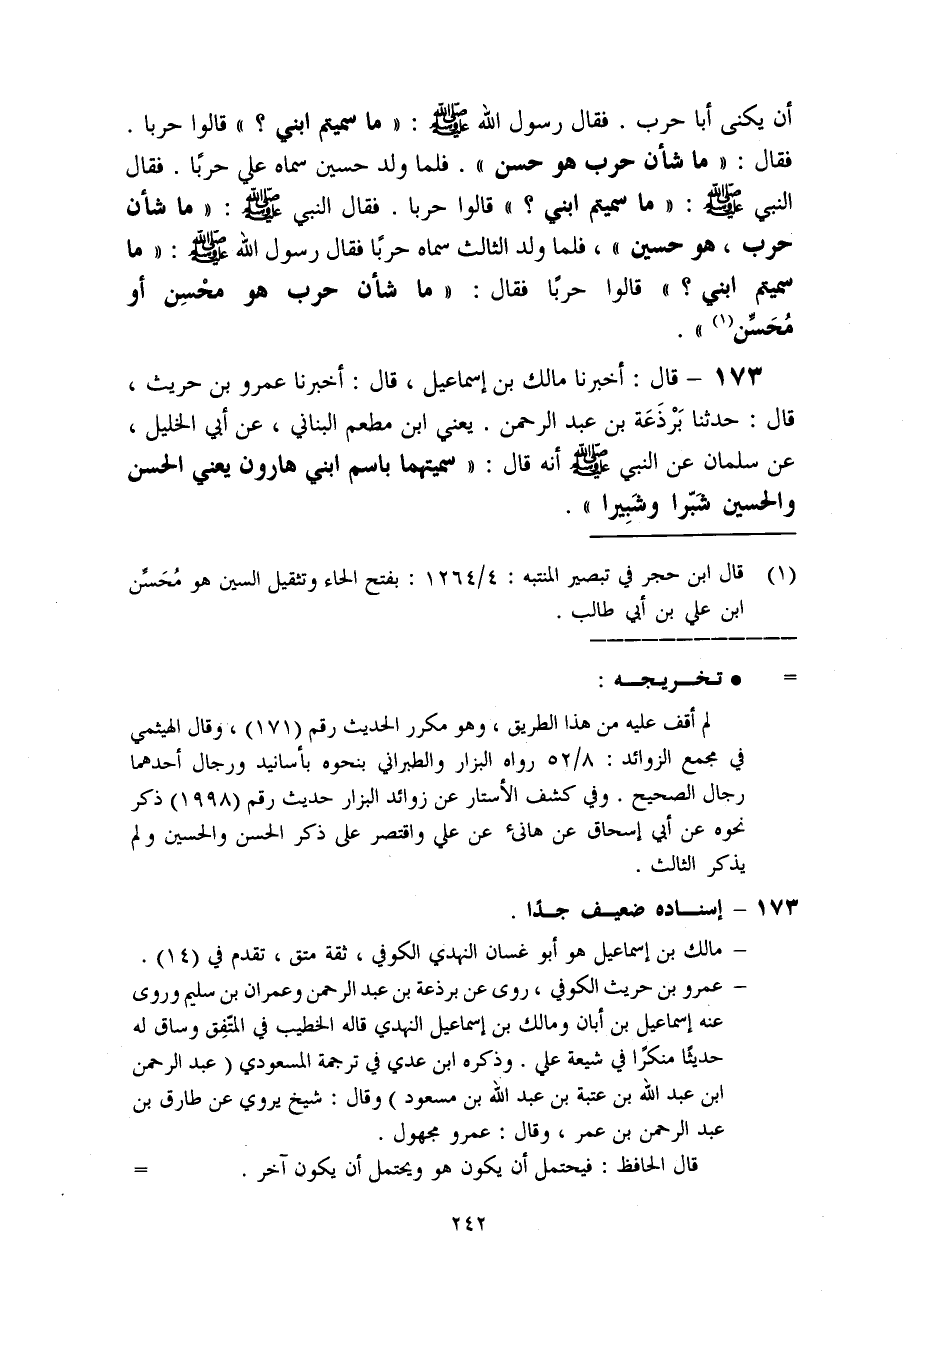 أن يكنى أبا حرب . فقال رسول الله ﷺ : « ما سميتم ابني ؟ » قالوا حربا .
فقال : « ما شأن حرب هو حسن » . فلما ولد حسين سماه علي حربًا . فقال
النبي ﷺ : « ما سميتم ابني ؟ » قالوا حربا . فقال النبي ﷺ : « ما شأن
حرب ، هو حسين » ، فلما ولد الثالث سماه حربًا فقال رسول الله ﷺ : « ما
سميتم ابني ؟ » قالوا حربًا فقال : « ما شأن حرب هو محْسِن أو
مُحَسِّن(١) » .
١٧٣ – قال : أخبرنا مالك بن إسماعيل ، قال : أخبرنا عمرو بن حريث ،
قال : حدثنا بَرْذَعَة بن عبد الرحمن . يعني ابن مطعم البناني ، عن أبي الخليل ،
عن سلمان عن النبي ﷺ أنه قال : « سميتهما باسم ابني هارون يعني الحسن
والحسين شَبّرا وشَبِيرا » .
(١) قال ابن حجر في تبصير المنتبه : ١٢٦٤/٤ : بفتح الحاء وتثقيل السين هو مُحَسِّن
ابن علي بن أبي طالب .
= • تـخـريـجـه :
لم أقف عليه من هذا الطريق ، وهو مكرر الحديث رقم (١٧١) ، وقال الهيثمي
في مجمع الزوائد : ٥٢/٨ رواه البزار والطبراني بنحوه بأسانيد ورجال أحدهما
رجال الصحيح . وفي كشف الأستار عن زوائد البزار حديث رقم (١٩٩٨) ذكر
نحوه عن أبي إسحاق عن هانىء عن علي واقتصر على ذكر الحسن والحسين ولم
يذكر الثالث .
١٧٣ – إسنـاده ضعيـف جـدًا .
– مالك بن إسماعيل هو أبو غسان النهدي الكوفي ، ثقة متق ، تقدم في (١٤) .
– عمرو بن حريث الكوفي ، روى عن برذعة بن عبد الرحمن وعمران بن سليم وروى
عنه إسماعيل بن أبان ومالك بن إسماعيل النهدي قاله الخطيب في المتّفِق وساق له
حديثًا منكرًا في شيعة علي . وذكره ابن عدي في ترجمة المسعودي ( عبد الرحمن
ابن عبد الله بن عتبة بن عبد الله بن مسعود ) وقال : شيخ يروي عن طارق بن
عبد الرحمن بن عمر ، وقال : عمرو مجهول .
قال الحافظ : فيحتمل أن يكون هو ويحتمل أن يكون آخر . =
٢٤٢